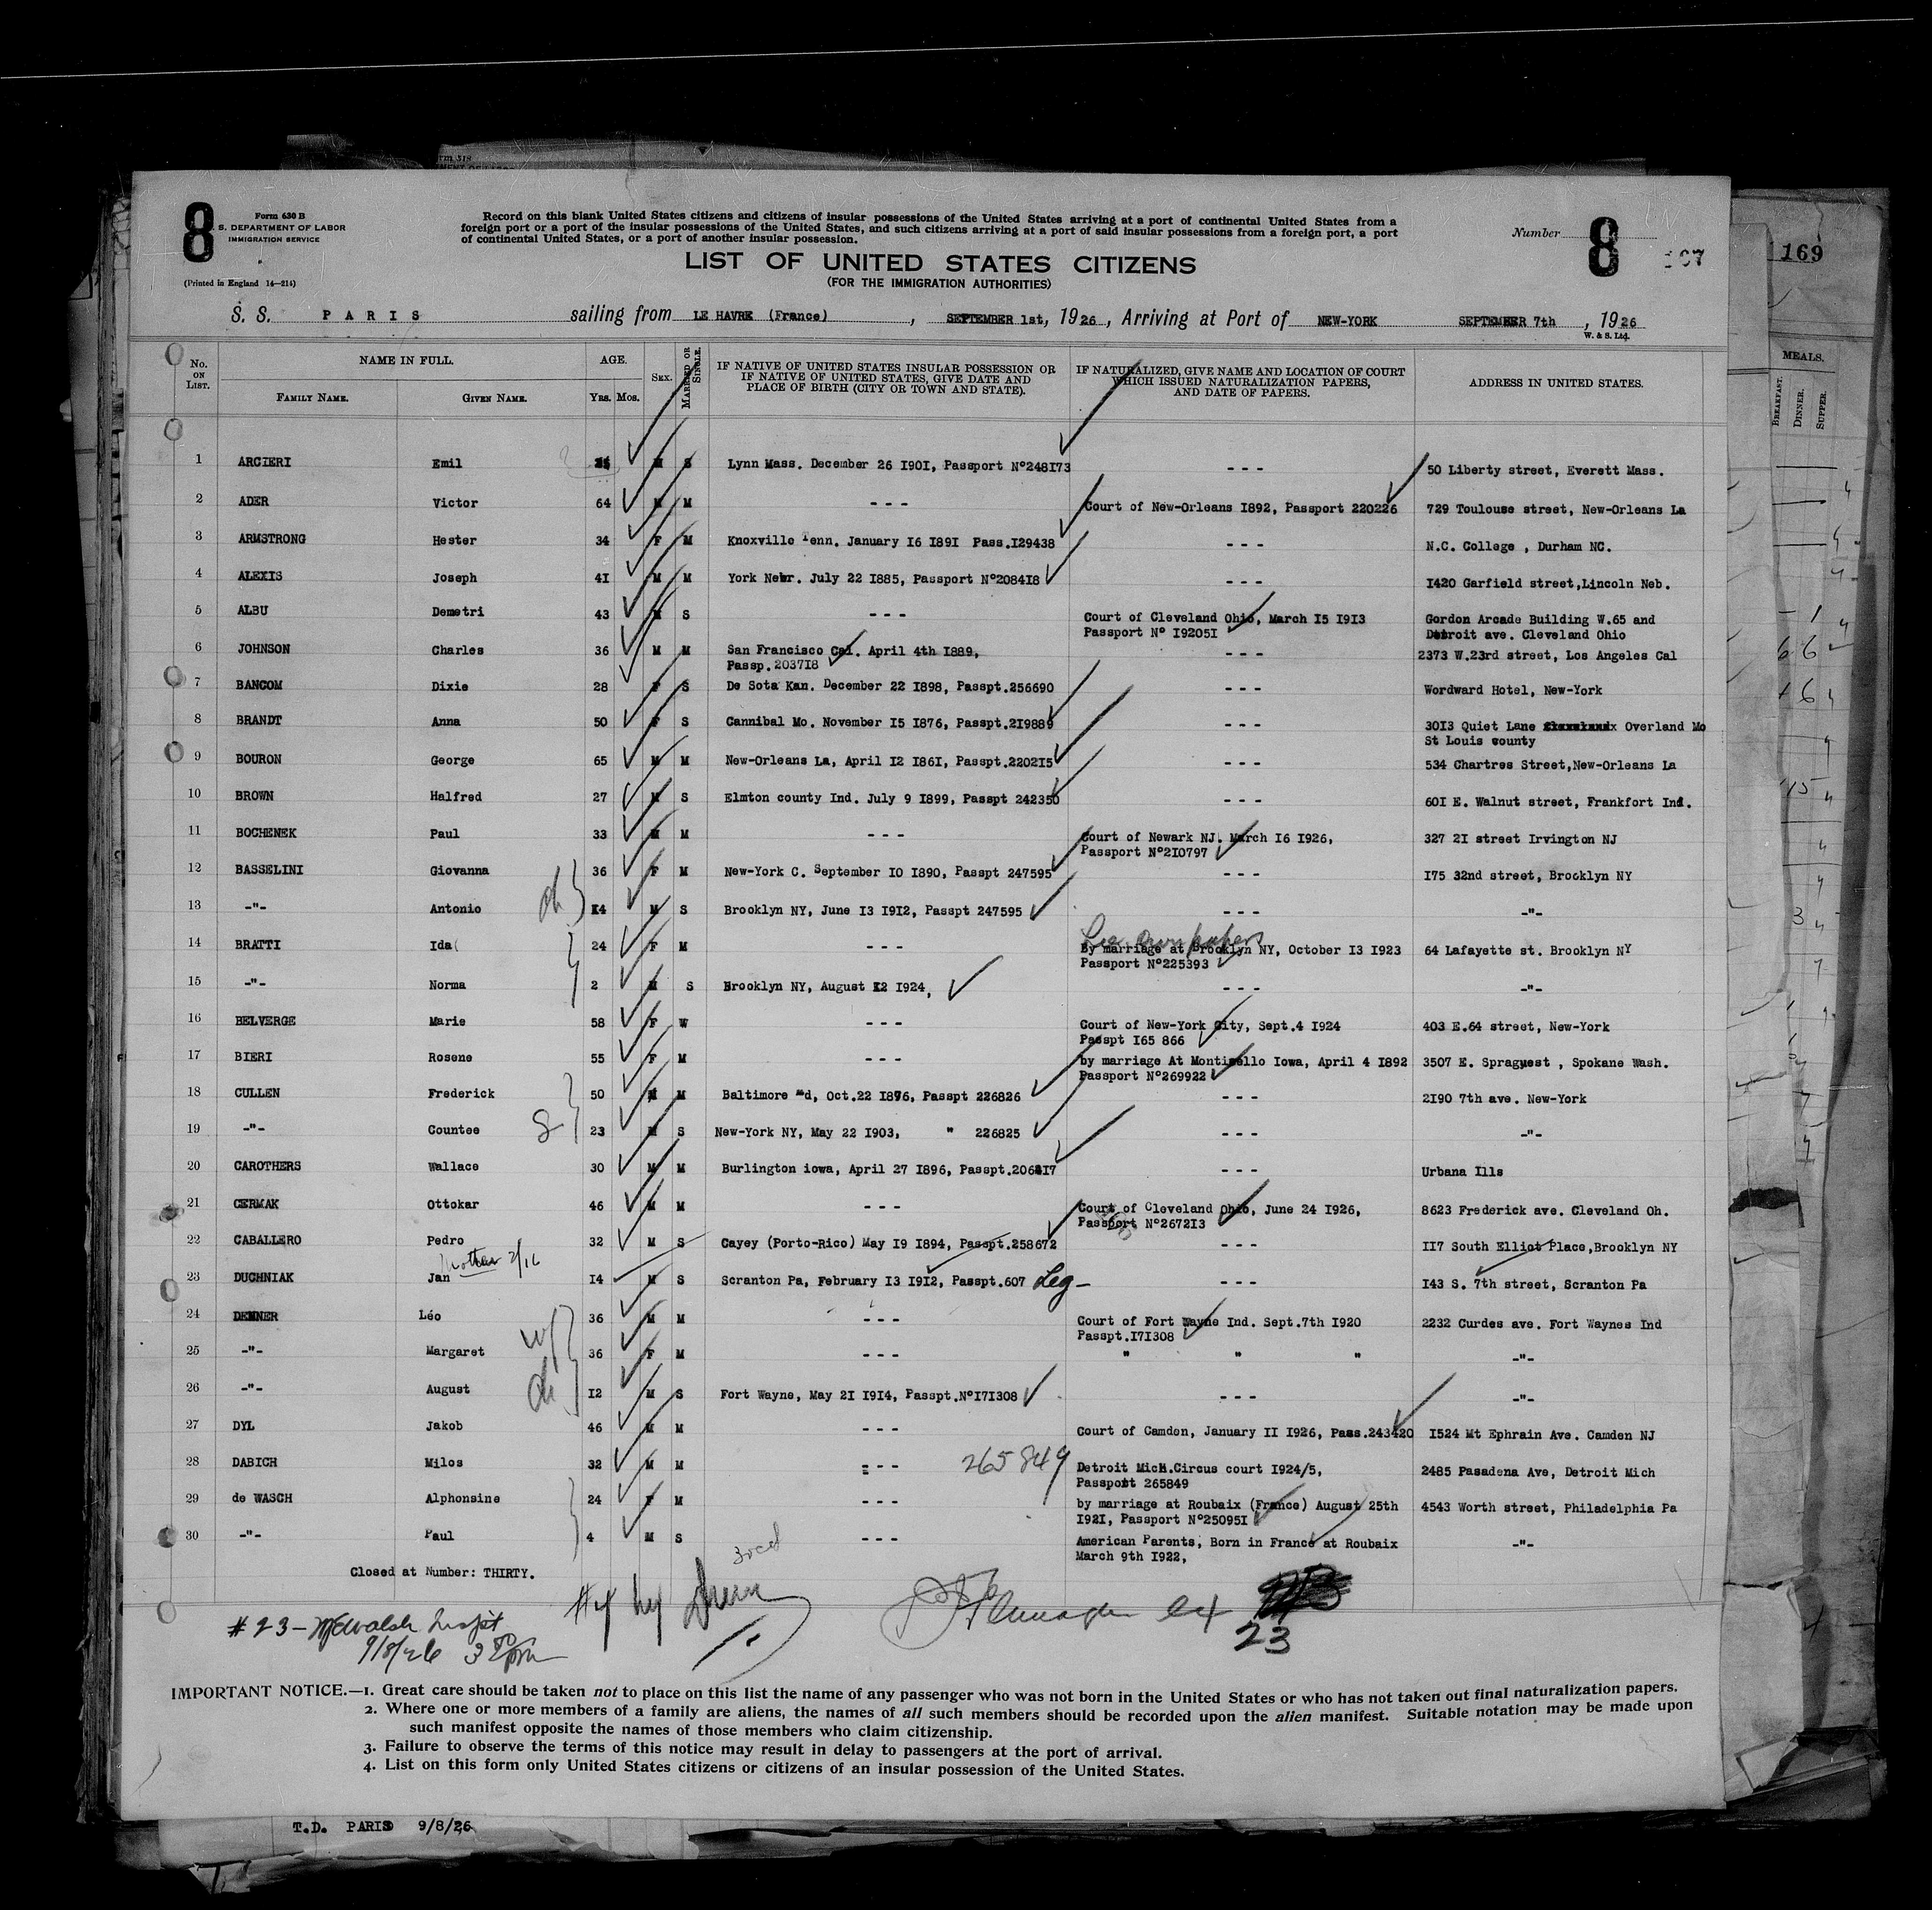 8
Form 630 B
S. DEPARTMENT OF LABOR
IMMIGRATION SERVICE
(Printed in England 14—214)
Record on this blank United States citizens and citizens of insular possessions of the United States arriving at a port of continental United States from a
foreign port or a port of the insular possessions of the United States, and such citizens arriving at a port of said insular possessions from a foreign port, a port
of continental United States, or a port of another insular possession.
Number 8
169
LIST OF UNITED STATES CITIZENS
(FOR THE IMMIGRATION AUTHORITIES)
S. S. PARIS sailing from LE HAVRE (France), SEPTEMBER 1st, 1926, Arriving at Port of NEW-YORK SEPTEMBER 7th, 1926
W. & S. Ltd.
No. ON LIST. NAME IN FULL. FAMILY NAME. GIVEN NAME. AGE. Yrs. Mos. SEX. MARRIED OR SINGLE. IF NATIVE OF UNITED STATES INSULAR POSSESSION OR IF NATIVE OF UNITED STATES, GIVE DATE AND PLACE OF BIRTH (CITY OR TOWN AND STATE). IF NATURALIZED, GIVE NAME AND LOCATION OF COURT WHICH ISSUED NATURALIZATION PAPERS, AND DATE OF PAPERS. ADDRESS IN UNITED STATES.
MEALS.
BREAKFAST. DINNER. SUPPER.
1 ARCIERI Emil M S Lynn Mass. December 26 1901, Passport N°248173 - - - 50 Liberty street, Everett Mass.
2 ADER Victor 64 M M - - - Court of New-Orleans 1892, Passport 220226 729 Toulouse street, New-Orleans La
3 ARMSTRONG Hester 34 F M Knoxville Tenn. January 16 1891 Pass.129438 - - - N.C. College , Durham NC.
4 ALEXIS Joseph 41 M M York Nebr. July 22 1885, Passport N°208418 - - - 1420 Garfield street,Lincoln Neb.
5 ALBU Demetri 43 M S - - - Court of Cleveland Ohio, March 15 1913 Gordon Arcade Building W.65 and
Passport N° 192051 Detroit ave. Cleveland Ohio
6 JOHNSON Charles 36 M M San Francisco Cal. April 4th 1889, - - - 2373 W.23rd street, Los Angeles Cal
Passp.203718
7 BANCOM Dixie 28 F S De Sota Kan. December 22 1898, Passpt.256690 - - - Wordward Hotel, New-York
8 BRANDT Anna 50 F S Cannibal Mo. November 15 1876, Passpt.219889 - - - 3013 Quiet Lane Overland Mo
St Louis county
9 BOURON George 65 M M New-Orleans La, April 12 1861, Passpt.220215 - - - 534 Chartres Street,New-Orleans La
10 BROWN Halfred 27 M S Elmton county Ind. July 9 1899, Passpt 242350 - - - 601 E. Walnut street, Frankfort Ind.
11 BOCHENEK Paul 33 M M - - - Court of Newark NJ. March 16 1926, 327 21 street Irvington NJ
Passport N°210797
12 BASSELINI Giovanna 36 F M New-York C. September 10 1890, Passpt 247595 - - - 175 32nd street, Brooklyn NY
13 -"- Antonio ch 14 M S Brooklyn NY, June 13 1912, Passpt 247595 - - - -"-
14 BRATTI Ida 24 F M - - - By marriage at Brooklyn NY, October 13 1923 64 Lafayette st. Brooklyn NY
Passport N°225393
15 -"- Norma 2 M S Brooklyn NY, August 12 1924, - - - -"-
16 BELVERGE Marie 58 F W - - - Court of New-York City, Sept.4 1924 403 E.64 street, New-York
Passpt 165 866
17 BIERI Rosene 55 F M - - - by marriage At Monticello Iowa, April 4 1892 3507 E. Spraguest , Spokane Wash.
Passport N°269922
18 CULLEN Frederick 50 M M Baltimore Md, Oct.22 1876, Passpt 226826 - - - 2190 7th ave. New-York
19 -"- Countee 23 M S New-York NY, May 22 1903, " 226825 - - - -"-
20 CAROTHERS Wallace 30 M M Burlington iowa, April 27 1896, Passpt.206417 - - - Urbana Ills
21 CERMAK Ottokar 46 M M - - - Court of Cleveland Ohio, June 24 1926, 8623 Frederick ave. Cleveland Oh.
Passport N°267213
22 CABALLERO Pedro 32 M S Cayey (Porto-Rico) May 19 1894, Passpt.258672 - - - 117 South Elliot Place,Brooklyn NY
mother 2/16
23 DUCHNIAK Jan 14 M S Scranton Pa, February 13 1912, Passpt.607 Leg- - - - 143 S. 7th street, Scranton Pa
24 DENNER Léo 36 M M - - - Court of Fort Wayne Ind. Sept.7th 1920 2232 Curdes ave. Fort Waynes Ind
Passpt.171308
25 -"- Margaret wf 36 F M - - - " " " -"-
26 -"- August ch 12 M S Fort Wayne, May 21 1914, Passpt.N°171308 - - - -"-
27 DYL Jakob 46 M M - - - Court of Camden, January 11 1926, Pass.243420 1524 Mt Ephrain Ave. Camden NJ
28 DABICH Milos 32 M M - - - 265849 Detroit Mich.Circus court 1924/5, 2485 Pasadena Ave, Detroit Mich
Passport 265849
29 de WASCH Alphonsine 24 F M - - - by marriage at Roubaix (France) August 25th 4543 Worth street, Philadelphia Pa
1921, Passport N°250951
30 -"- Paul 4 M S - - - American Parents, Born in France at Roubaix -"-
March 9th 1922,
Closed at Number: THIRTY.
#23 - Inspt
9/8/26 3 pm
#4 by
23
IMPORTANT NOTICE.—1. Great care should be taken not to place on this list the name of any passenger who was not born in the United States or who has not taken out final naturalization papers.
2. Where one or more members of a family are aliens, the names of all such members should be recorded upon the alien manifest. Suitable notation may be made upon
such manifest opposite the names of those members who claim citizenship.
3. Failure to observe the terms of this notice may result in delay to passengers at the port of arrival.
4. List on this form only United States citizens or citizens of an insular possession of the United States.
T.D. PARIS 9/8/26